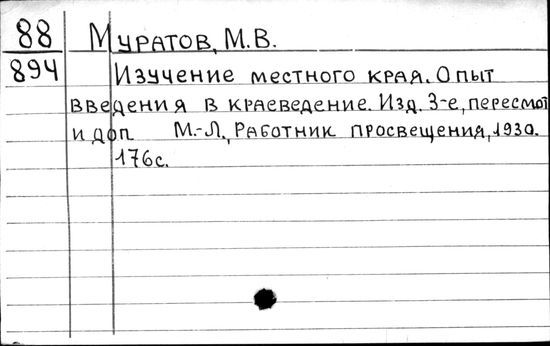 88 Муратов, М.В.
894 Изучение местного края. Опыт
введения в краеведение. Изд. 3-е, пересмот
и доп М.-Л., Работник просвещения, 1930.
176с.